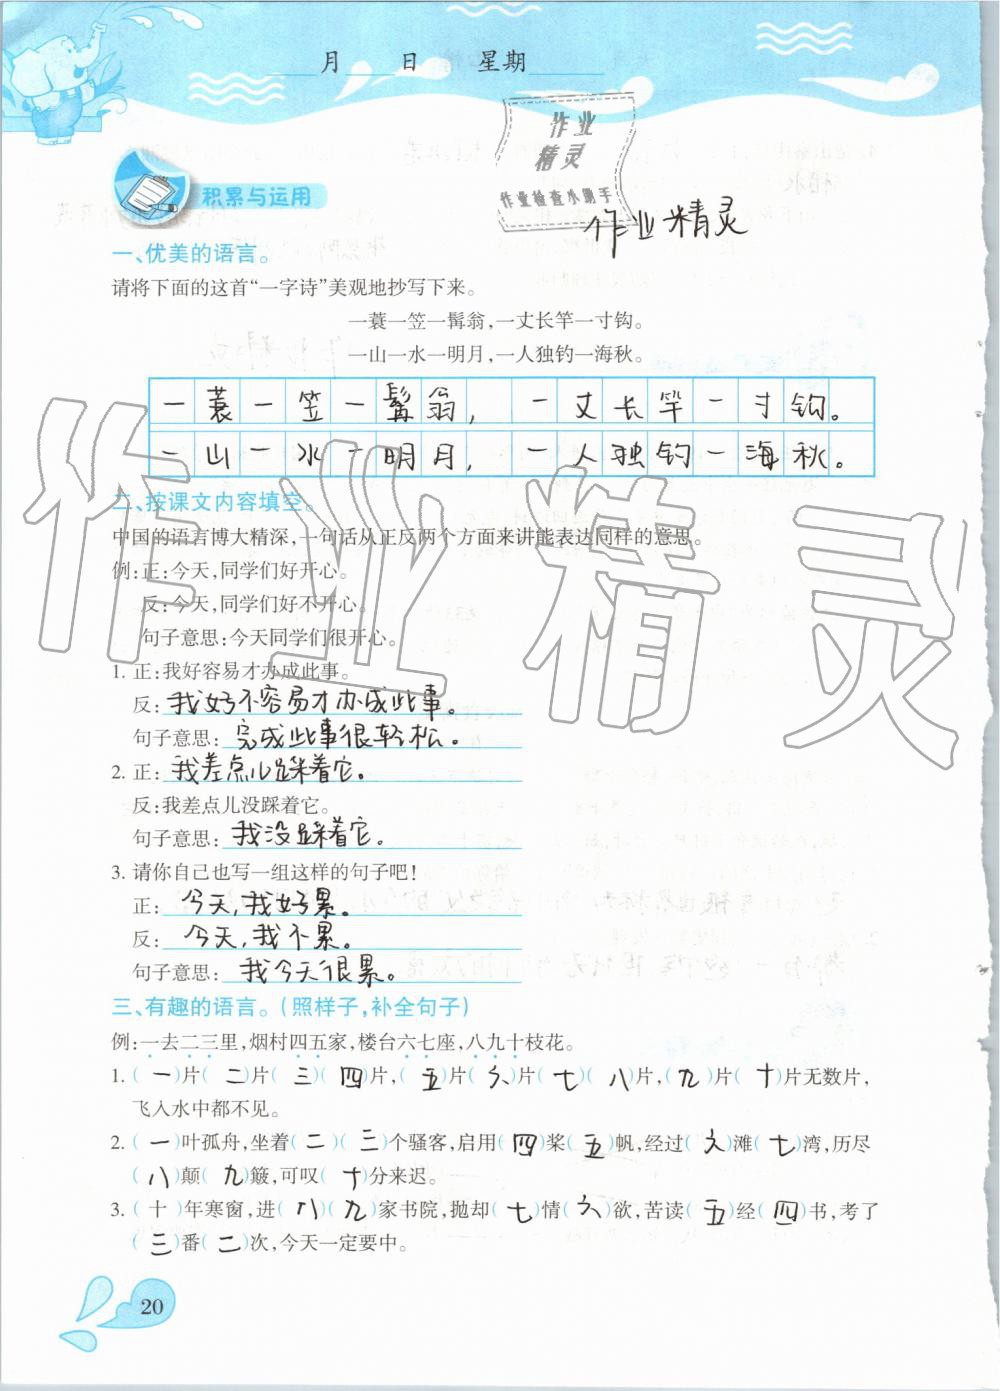 月 日 星期
作业
精灵
作业检查小助手
积累与运用
作业精灵
一、优美的语言。
请将下面的这首“一字诗”美观地抄写下来。
一蓑一笠一髯翁，一丈长竿一寸钩。
一山一水一明月，一人独钓一海秋。
一蓑一笠一髯翁，一丈长竿一寸钩。
一山一水一明月，一人独钓一海秋。
二、按课文内容填空。
中国的语言博大精深，一句话从正反两个方面来讲能表达同样的意思。
例：正：今天，同学们好开心。
反：今天，同学们好不开心。
句子意思：今天同学们很开心。
1. 正：我好容易才办成此事。
反：我好不容易才办成此事。
句子意思：完成此事很轻松。
2. 正：我差点儿踩着它。
反：我差点儿没踩着它。
句子意思：我没踩着它。
3. 请你自己也写一组这样的句子吧！
正：今天，我好累。
反：今天，我不累。
句子意思：我今天很累。
三、有趣的语言。（照样子，补全句子）
例：一去二三里，烟村四五家，楼台六七座，八九十枝花。
1.（一）片（二）片（三）（四）片，（五）片（六）片（七）（八）片，（九）片（十）片无数片，
飞入水中都不见。
2.（一）叶孤舟，坐着（二）（三）个骚客，启用（四）桨（五）帆，经过（六）滩（七）湾，历尽
（八）颠（九）簸，可叹（十）分来迟。
3.（十）年寒窗，进（八）（九）家书院，抛却（七）情（六）欲，苦读（五）经（四）书，考了
（三）番（二）次，今天一定要中。
20
作业精灵